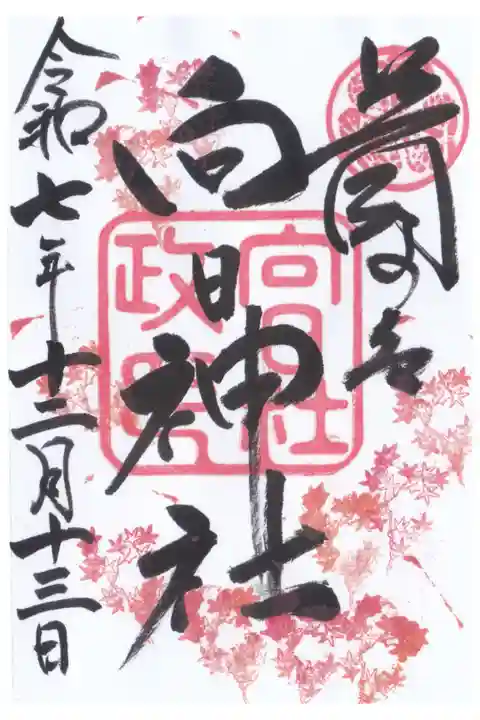 向日神社
令和七年十二月十三日
向日社
政所